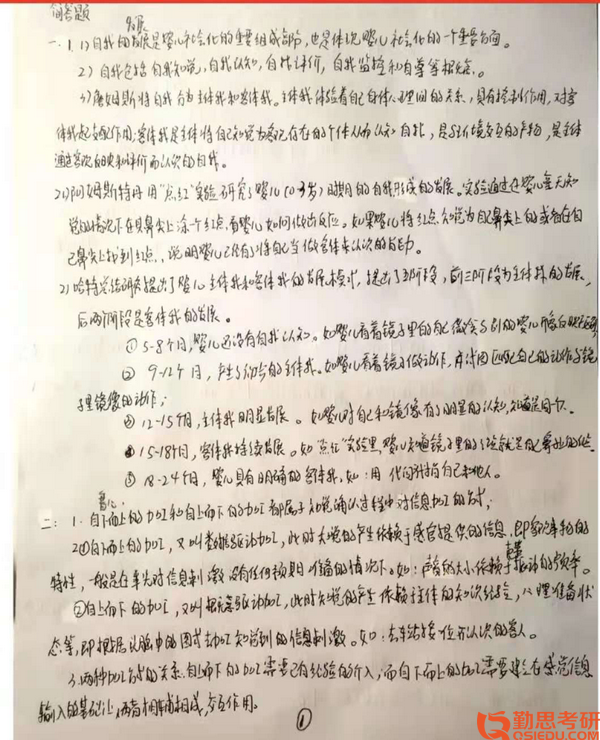 简答题
发展
一、1. 1) 自我的发展是婴儿社会化的重要组成部分，也是体现婴儿社会化的一个重要方面。
2) 自我包括自我知觉，自我认知，自我评价，自我监控和自尊等相关。
3) 詹姆斯将自我分为主体我和客体我。主体我体验着自己身体心理间的关系，具有控制作用，对客
体我起支配作用；客体我是主体将自己知觉为客观存在的个体从而认知自我，是与环境交互的产物，是主体
通过客观的映和评价而认识的自我。
2. 1) 阿姆斯特丹用“点红”实验研究了婴儿(0-3岁)时期的自我形成的发展。实验通过在婴儿毫无知
觉的情况下在其鼻尖上涂一个红点，看婴儿如何做出反应。如果婴儿将红点知觉为自己鼻尖上的或者在自
己鼻尖上找到红点，说明婴儿已经有将自己当做客体来认识的能力。
2) 哈特总结研究提出了婴儿主体我和客体我的发展模式，提出了五阶段，前三阶段为主体我的发展，
后两个阶段是客体我的发展。
① 5-8个月，婴儿还没有自我认知。如婴儿看着镜子里的自己微会与别的婴儿
② 9-12个月，产生了初步的主体我。如婴儿看着镜子做动作，并试图匹配自己的动作与镜
子里镜像的动作；
③ 12-15个月，主体我明显发展。如婴儿对自己和镜像有了明显的认知，知道是同一个。
④ 15-18个月，客体我持续发展。如“点红”实验里，婴儿知道镜子里的红点就是自己鼻尖的红点。
⑤ 18-24个月，婴儿具有明确的客体我，如：用代词标志自己和他人。
二：1. 自下而上的加工和自上而下的加工都属于知觉确认过程中对信息加工的方式；
2.① 自下而上的加工，又叫数据驱动加工，此时知觉的产生依赖于感官提供的信息，即客观事物的
特性，一般是在事先对信息刺激没有任何预期准备的情况下。如：声音的大小依赖于振动的频率。
② 自上而下的加工，又叫概念驱动加工，此时知觉的产生依赖主体的知识经验，心理准备状
态等，即根据头脑中的图式去加工知觉到的信息刺激。如：去车站接一位不认识的客人。
3. 两种加工方式的关系：自上而下的加工需要已有经验的介入，而自下而上的加工需要建立在感觉信息
输入的基础上，两者相辅相成，交互作用。
①
勤思考研
QSIEDU.COM